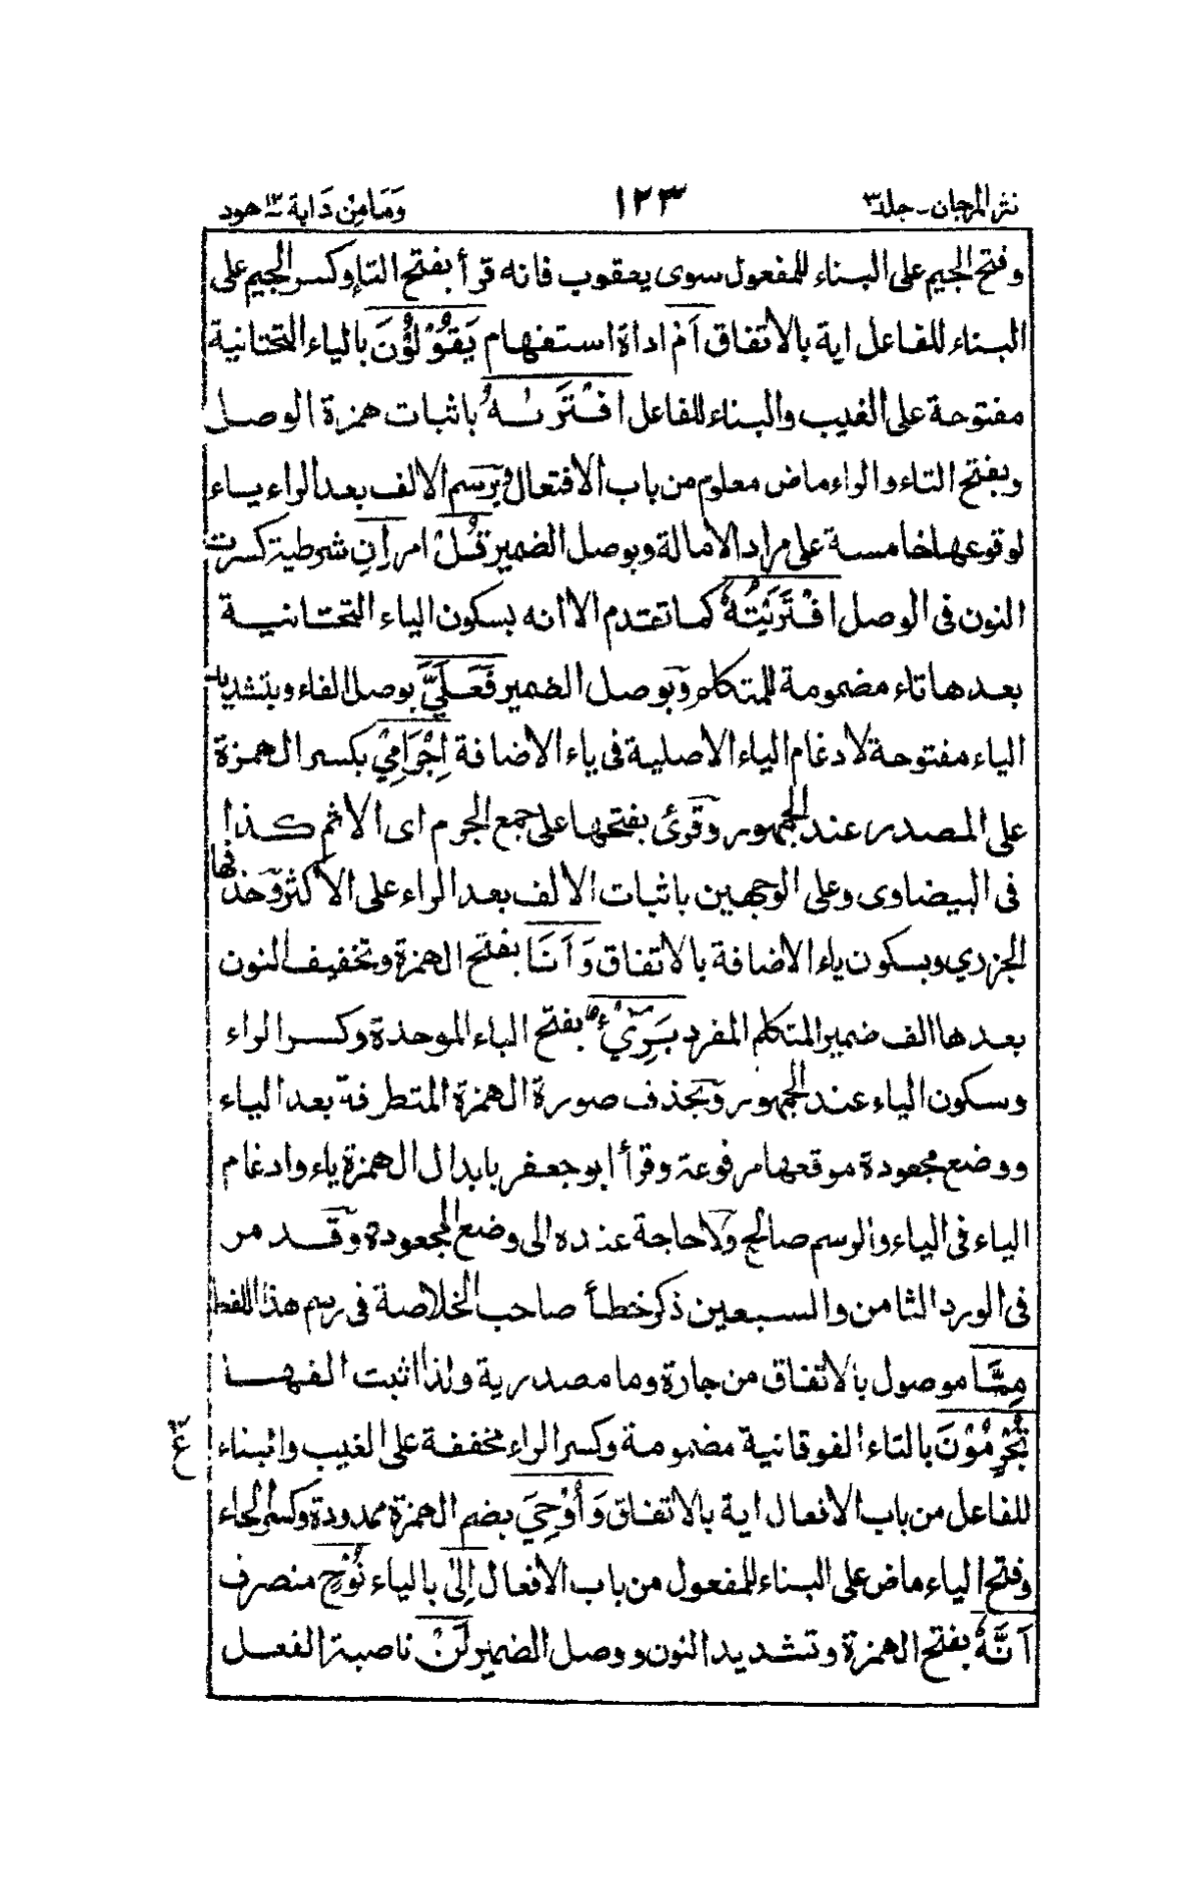 نثر المرجان - جلد ٣ ١٢٣ وَمَا مِنْ دَابة ١٢ هود
وفتح الجيم على البناء للمفعول سوى يعقوب فانه قرأ بفتح التاء وكسر الجيم على
البناء للفاعل اية بالاتفاق اَمْ اداة استفهام يَقُوْلُوْنَ بالياء التحتانية
مفتوحة على الغيب والبناء للفاعل افْتَرَىٰهُ باثبات همزة الوصل
وبفتح التاء والراء ماض معلوم من باب الافتعال وبرسم الالف بعد الراء ياء
لوقوعها خامسة على مراد الامالة وبوصل الضمير قُلْ امر اِنِ شرطية كسرت
النون فى الوصل افْتَرَيْتُهٗ كما تقدم الا انه بسكون الياء التحتانية
بعدها تاء مضمومة للمتكلم وبوصل الضمير فَعَلَيَّ بوصل الفاء وبتشديد
الياء مفتوحة لادغام الياء الاصلية فى ياء الاضافة اِجْرَامِيْ بكسر الهمزة
على المصدر عند الجمهور وقرئ بفتحها على جمع الجرم اى الاثم كذا
فى البيضاوى وعلى الوجهين باثبات الالف بعد الراء على الاكثر وحذفها
الجزري وبسكون ياء الاضافة بالاتفاق وَاَنَا بفتح الهمزة وتخفيف النون
بعدها الف ضمير المتكلم المفرد بَرِيْٓءٌ بفتح الباء الموحدة وكسر الراء
وسكون الياء عند الجمهور وبحذف صورة الهمزة المتطرفة بعد الياء
ووضع مجعودة موقعها مرفوعة وقرأ ابو جعفر بابدال الهمزة ياء وادغام
الياء فى الياء والرسم صالح ولا حاجة عنده الى وضع المجعودة وقد مر
فى الورد الثامن والسبعين ذكر خطأ صاحب الخلاصة فى رسم هذا اللفظ
مِمَّا موصول بالاتفاق من جارة وما مصدرية ولذا اثبت الفها
تُجْرِمُوْنَ بالتاء الفوقانية مضمومة وكسر الراء مخففة على الغيب والبناء
للفاعل من باب الافعال اية بالاتفاق وَاُوْحِيَ بضم الهمزة ممدودة وكسر الحاء
وفتح الياء ماض على البناء للمفعول من باب الافعال اِلٰى بالياء نُوْحٍ منصرف
اَنَّهٗ بفتح الهمزة وتشديد النون ووصل الضمير لَنْ ناصبة الفعل